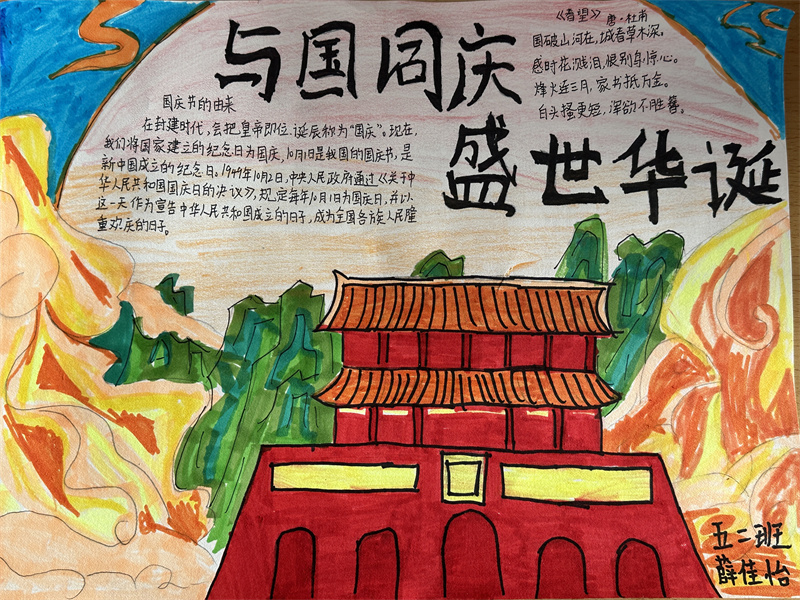 与国同庆
盛世华诞
《春望》 唐·杜甫
国破山河在,城春草木深。
感时花溅泪,恨别鸟惊心。
烽火连三月,家书抵万金。
白头搔更短,浑欲不胜簪。
国庆节的由来
在封建时代,会把皇帝即位、诞辰称为“国庆”。现在,
我们将国家建立的纪念日为国庆,10月1日是我国的国庆节,是
新中国成立的纪念日。1949年10月2日,中央人民政府通过《关于中
华人民共和国国庆日的决议》,规定每年10月1日为国庆日,并以
这一天作为宣告中华人民共和国成立的日子,成为全国各族人民隆
重欢庆的日子。
五二班
薛佳怡